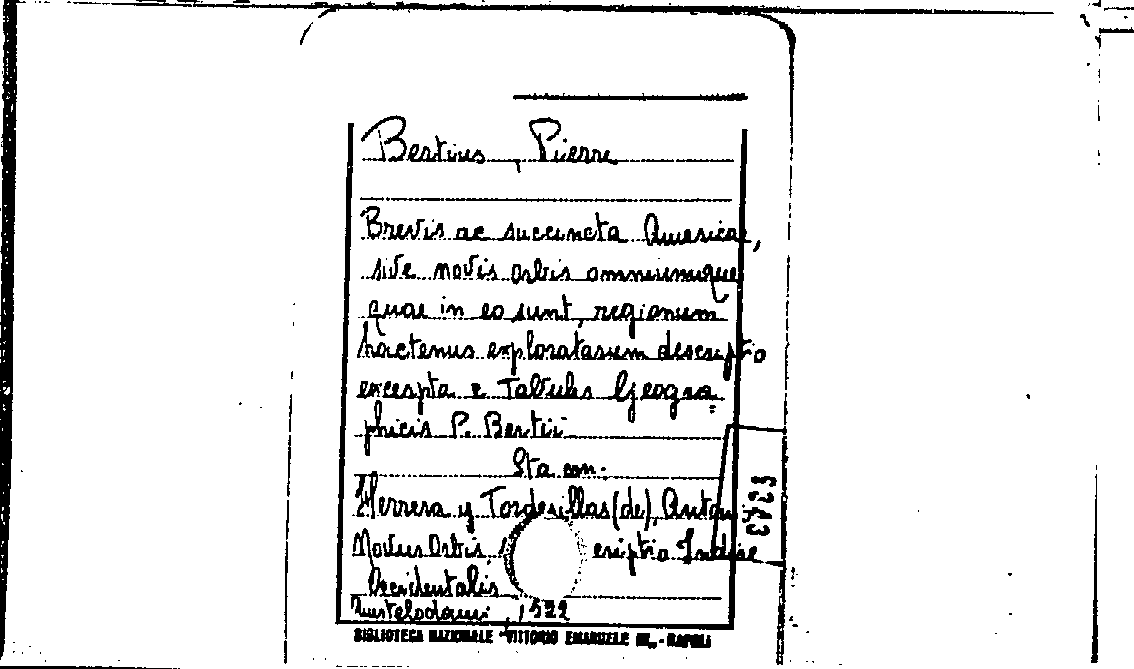 Bertius, Pierre
Brevis ac succincta Americae,
sive novis orbis omniumque
quae in eo sunt, regionum
hactenus exploratarum descriptio
excerpta e Tabulis Geogra
phicis P. Bertii
Sta con:
Herrera y Tordesillas (de), Anton
Novus Orbis, criptio Indiae
Occidentalis
Amstelodami, 1522
BIBLIOTECA NAZIONALE "VITTORIO EMANUELE III„ - NAPOLI